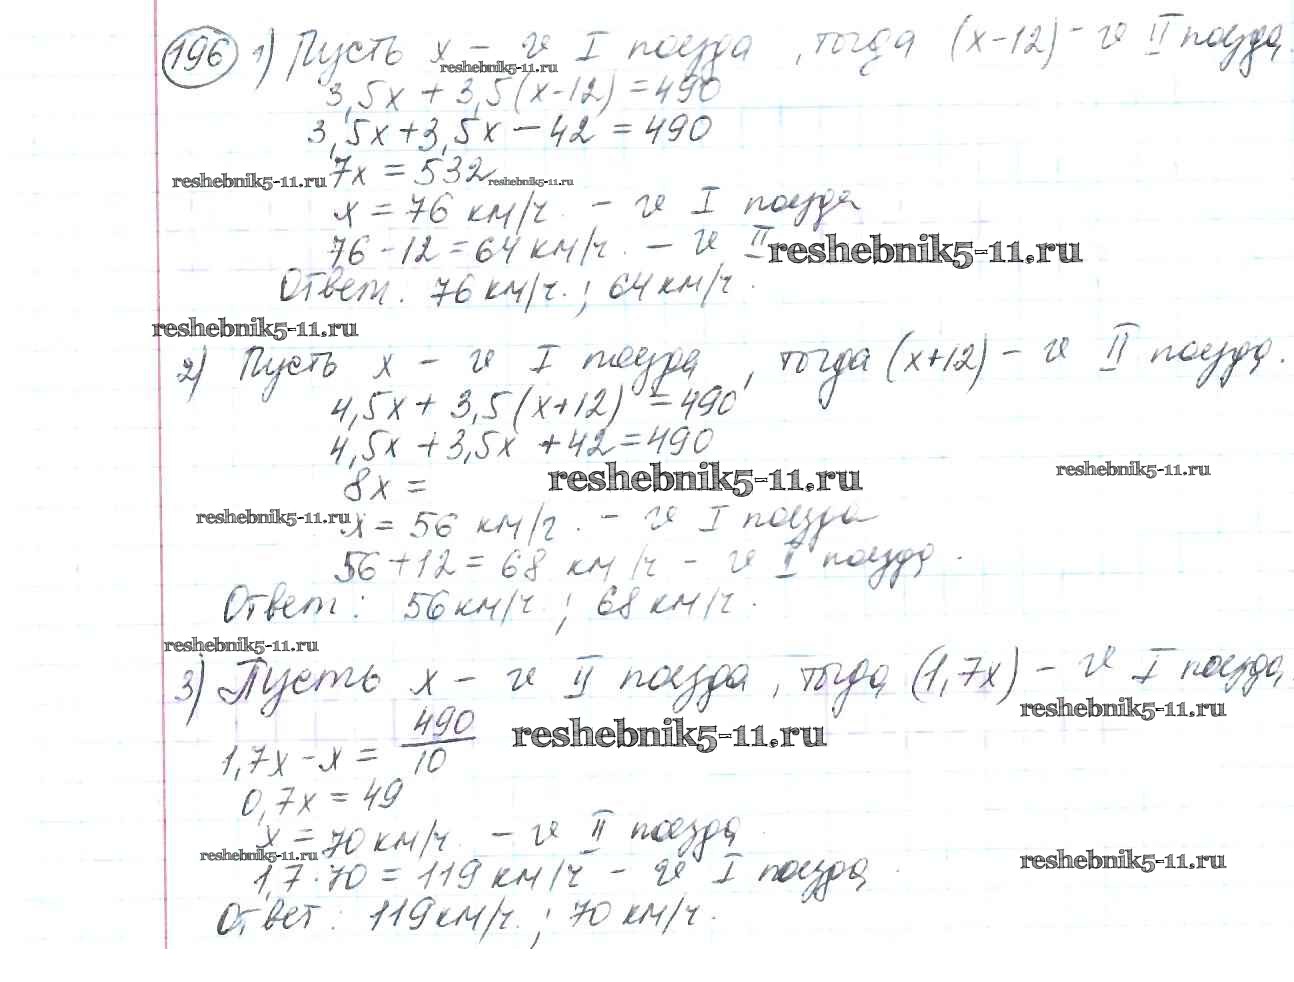 196 1) Пусть x – v I поезда, тогда (x-12) – v II поезда.
reshebnik5-11.ru
3,5x + 3,5(x-12) = 490
3,5x + 3,5x – 42 = 490
reshebnik5-11.ru 7x = 532 reshebnik5-11.ru
x = 76 км/ч. – v I поезда
76 - 12 = 64 км/ч. – v II reshebnik5-11.ru
Ответ. 76 км/ч. ; 64 км/ч.
reshebnik5-11.ru
2) Пусть x – v I поезда, тогда (x+12) – v II поезда.
4,5x + 3,5(x+12) = 490
4,5x + 3,5x + 42 = 490
8x = reshebnik5-11.ru reshebnik5-11.ru
reshebnik5-11.ru x = 56 км/ч. – v I поезда
56 + 12 = 68 км/ч – v I поезда.
Ответ: 56 км/ч. ; 68 км/ч.
reshebnik5-11.ru
3) Пусть x – v II поезда, тогда (1,7x) – v I поезда.
reshebnik5-11.ru
1,7x - x = 490/10 reshebnik5-11.ru
0,7x = 49
x = 70 км/ч. – v II поезда
reshebnik5-11.ru reshebnik5-11.ru
1,7 · 70 = 119 км/ч – v I поезда.
Ответ: 119 км/ч. ; 70 км/ч.